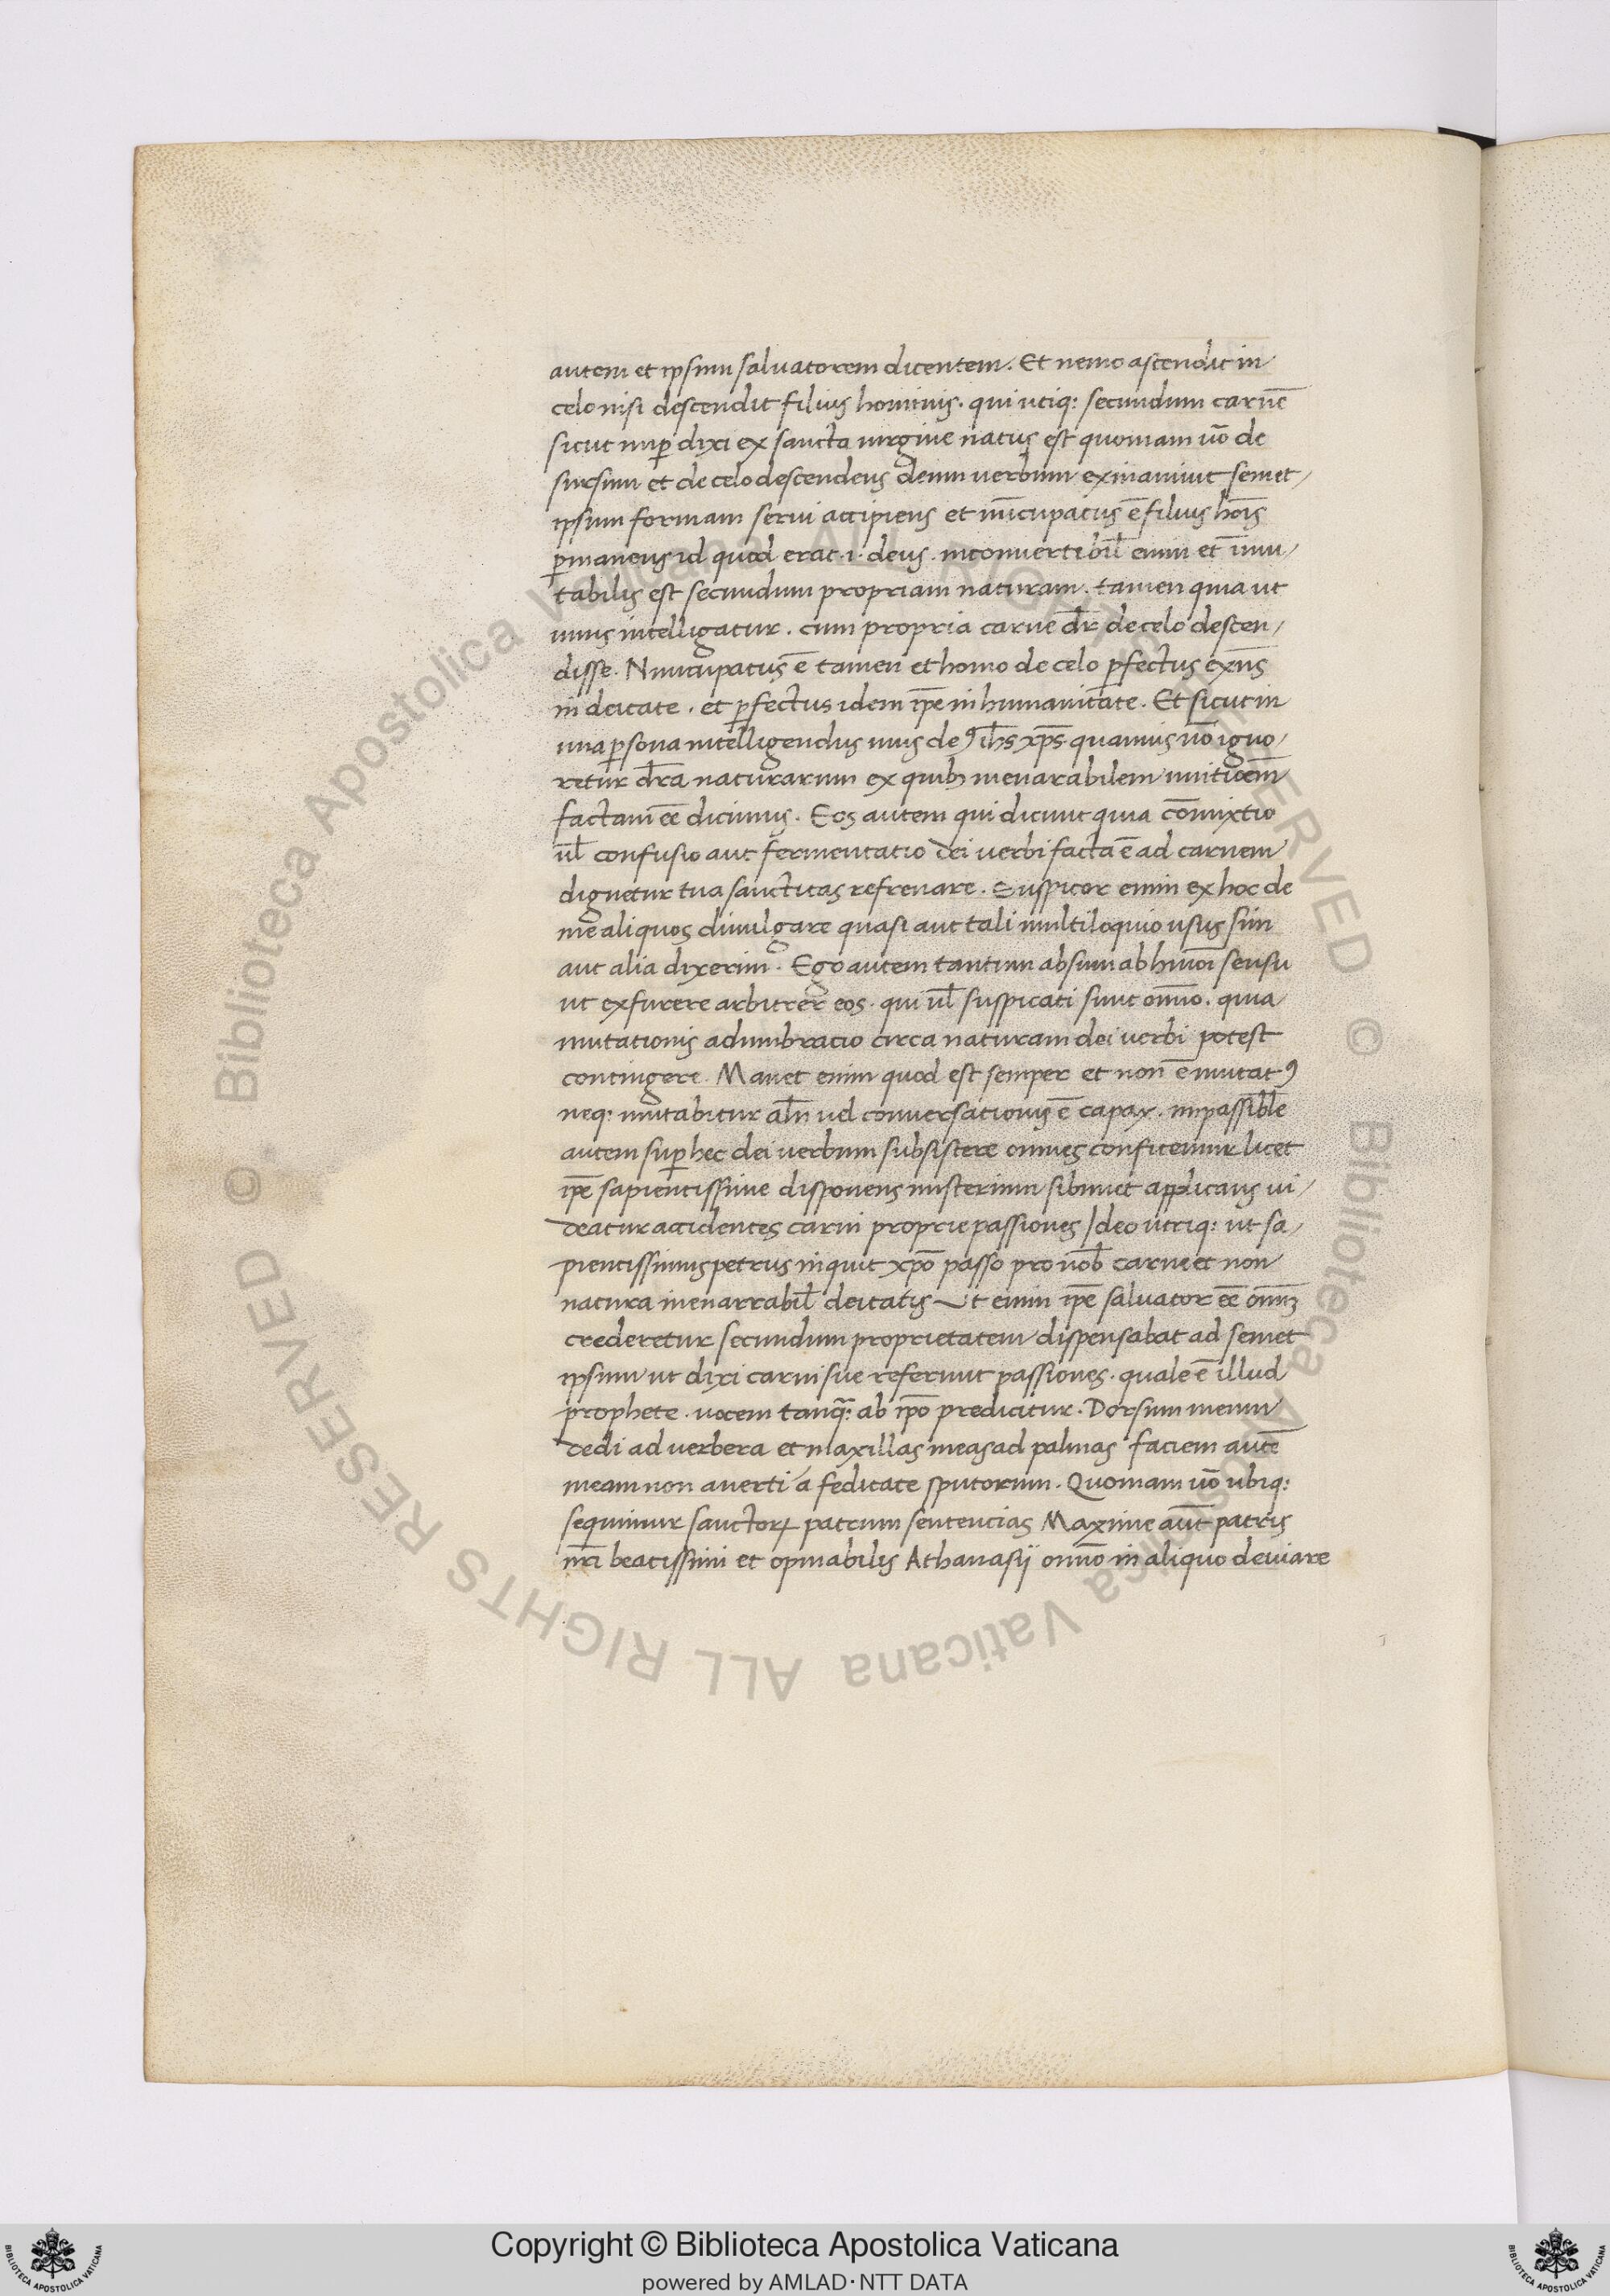 autem et ipsum salvatorem dicentem. Et nemo ascendit in
celo nisi descendit filius hominis. qui utiq: secundum carnē
sicut nup̄ dixi ex sancta virgine natus est quoniam uō de
sursum et de celo descendens deum verbum exinanivit semet,
ipsum formam servi accipiens et nūcupatus ē filius hoīs
p̄manens id quod erat .i. deus. inconvertibil̄ enim et īmu,
tabilis est secundum propriam naturam. tamen quia ut
unus intelligatur. cum propria carne dr̄ de celo descen,
disse. Nuncupatus ē tamen et homo de celo p̄fectus exn̄s
in deitate. et p̄fectus idem ip̄e in humanitate. Et sicut in
una p̄sona intelligendus unus deꝰ ih̄s xp̄s. quamvis nō igno,
retur dr̄a naturarum ex quibꝫ inenarabilem unitioēm
factam eē dicimus. Eos autem qui dicunt quia cōmixtio
ul̄ confusio aut fermentatio dei verbi facta ē ad carnem
dignetur tua sanctitas refrenare. Suspicor enim ex hoc de
me aliquos divulgare quasi aut tali multiloquio usus sim
aut alia dixerim. Ego autem tantum absum ab hmōi sensu
ut exfurere arbitrer eos. qui ul̄ suspicati sunt om̄no. quia
mutationis adumbracio circa naturam dei verbi potest
contingere. Manet enim quod est semper et non ē mutatꝰ
neq: mutabitur al̄n vel conversationis ē capax. impassibl̄e
autem sup̄ hec dei verbum subsistere omnes confitemur licet
ip̄e sapientissime disponens misterium sibimet applicans vi,
deatur accidentes carni proprie passiones Ideo utiq: ut sa,
pientissimus petrus inquit xp̄o passo pro nob̄ carne et non
natura inenarrabil̄ deitatis Ut enim ip̄e salvator eē om̄iꝫ
crederetur secundum proprietatem dispensabat ad semet
ipsum ut dixi carni sue referunt passiones. quale ē illud
prophete. vocem tanq̄: ab ip̄o predicitur. Dorsum meum
dedi ad verbera et maxillas meas ad palmas faciem autē
meam non averti a feditate sputorum. Quoniam uō ubiq:
sequimur sanctoꝝ patrum sentencias Maxime aūt patris
nr̄i beatissimi et opinabilis Athanasij om̄no in aliquo deviare
© Biblioteca Apostolica Vaticana ALL RIGHTS RESERVED © Biblioteca Apostolica Vaticana ALL RIGHTS RESERVED
Copyright © Biblioteca Apostolica Vaticana
powered by AMLAD·NTT DATA
BIBLIOTECA APOSTOLICA VATICANA
BIBLIOTECA APOSTOLICA VATICANA